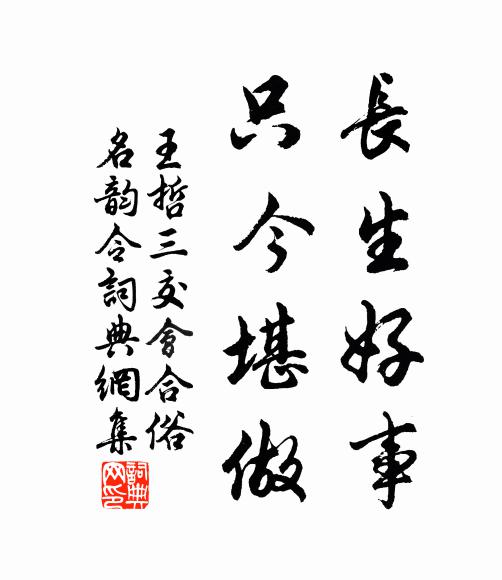 長生好事
只今堪做
王哲三交會合俗
名韵令詞典網集
詞典網印